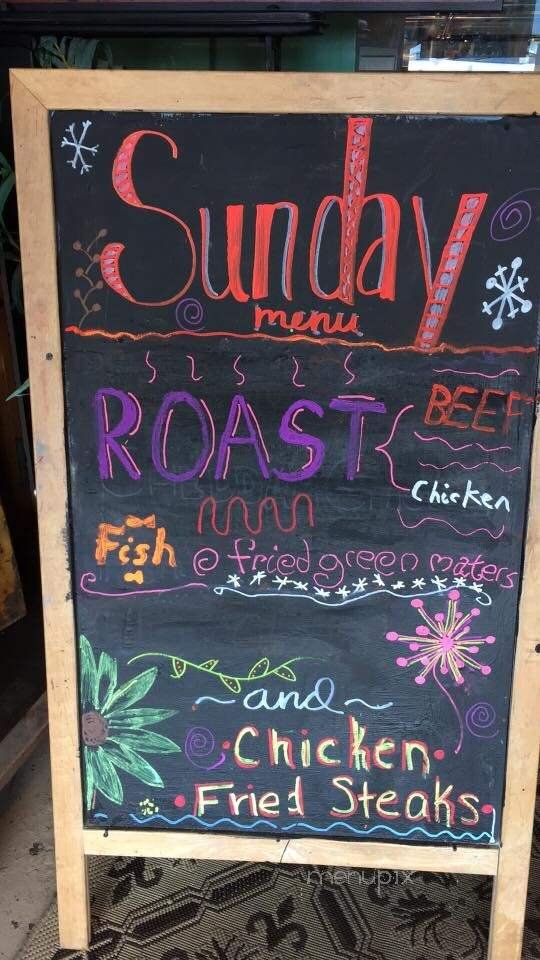 Sunday
menu
ROAST
BEEF
Chicken
Fish
fried green maters
~and~
Chicken
Fried Steaks
menupix